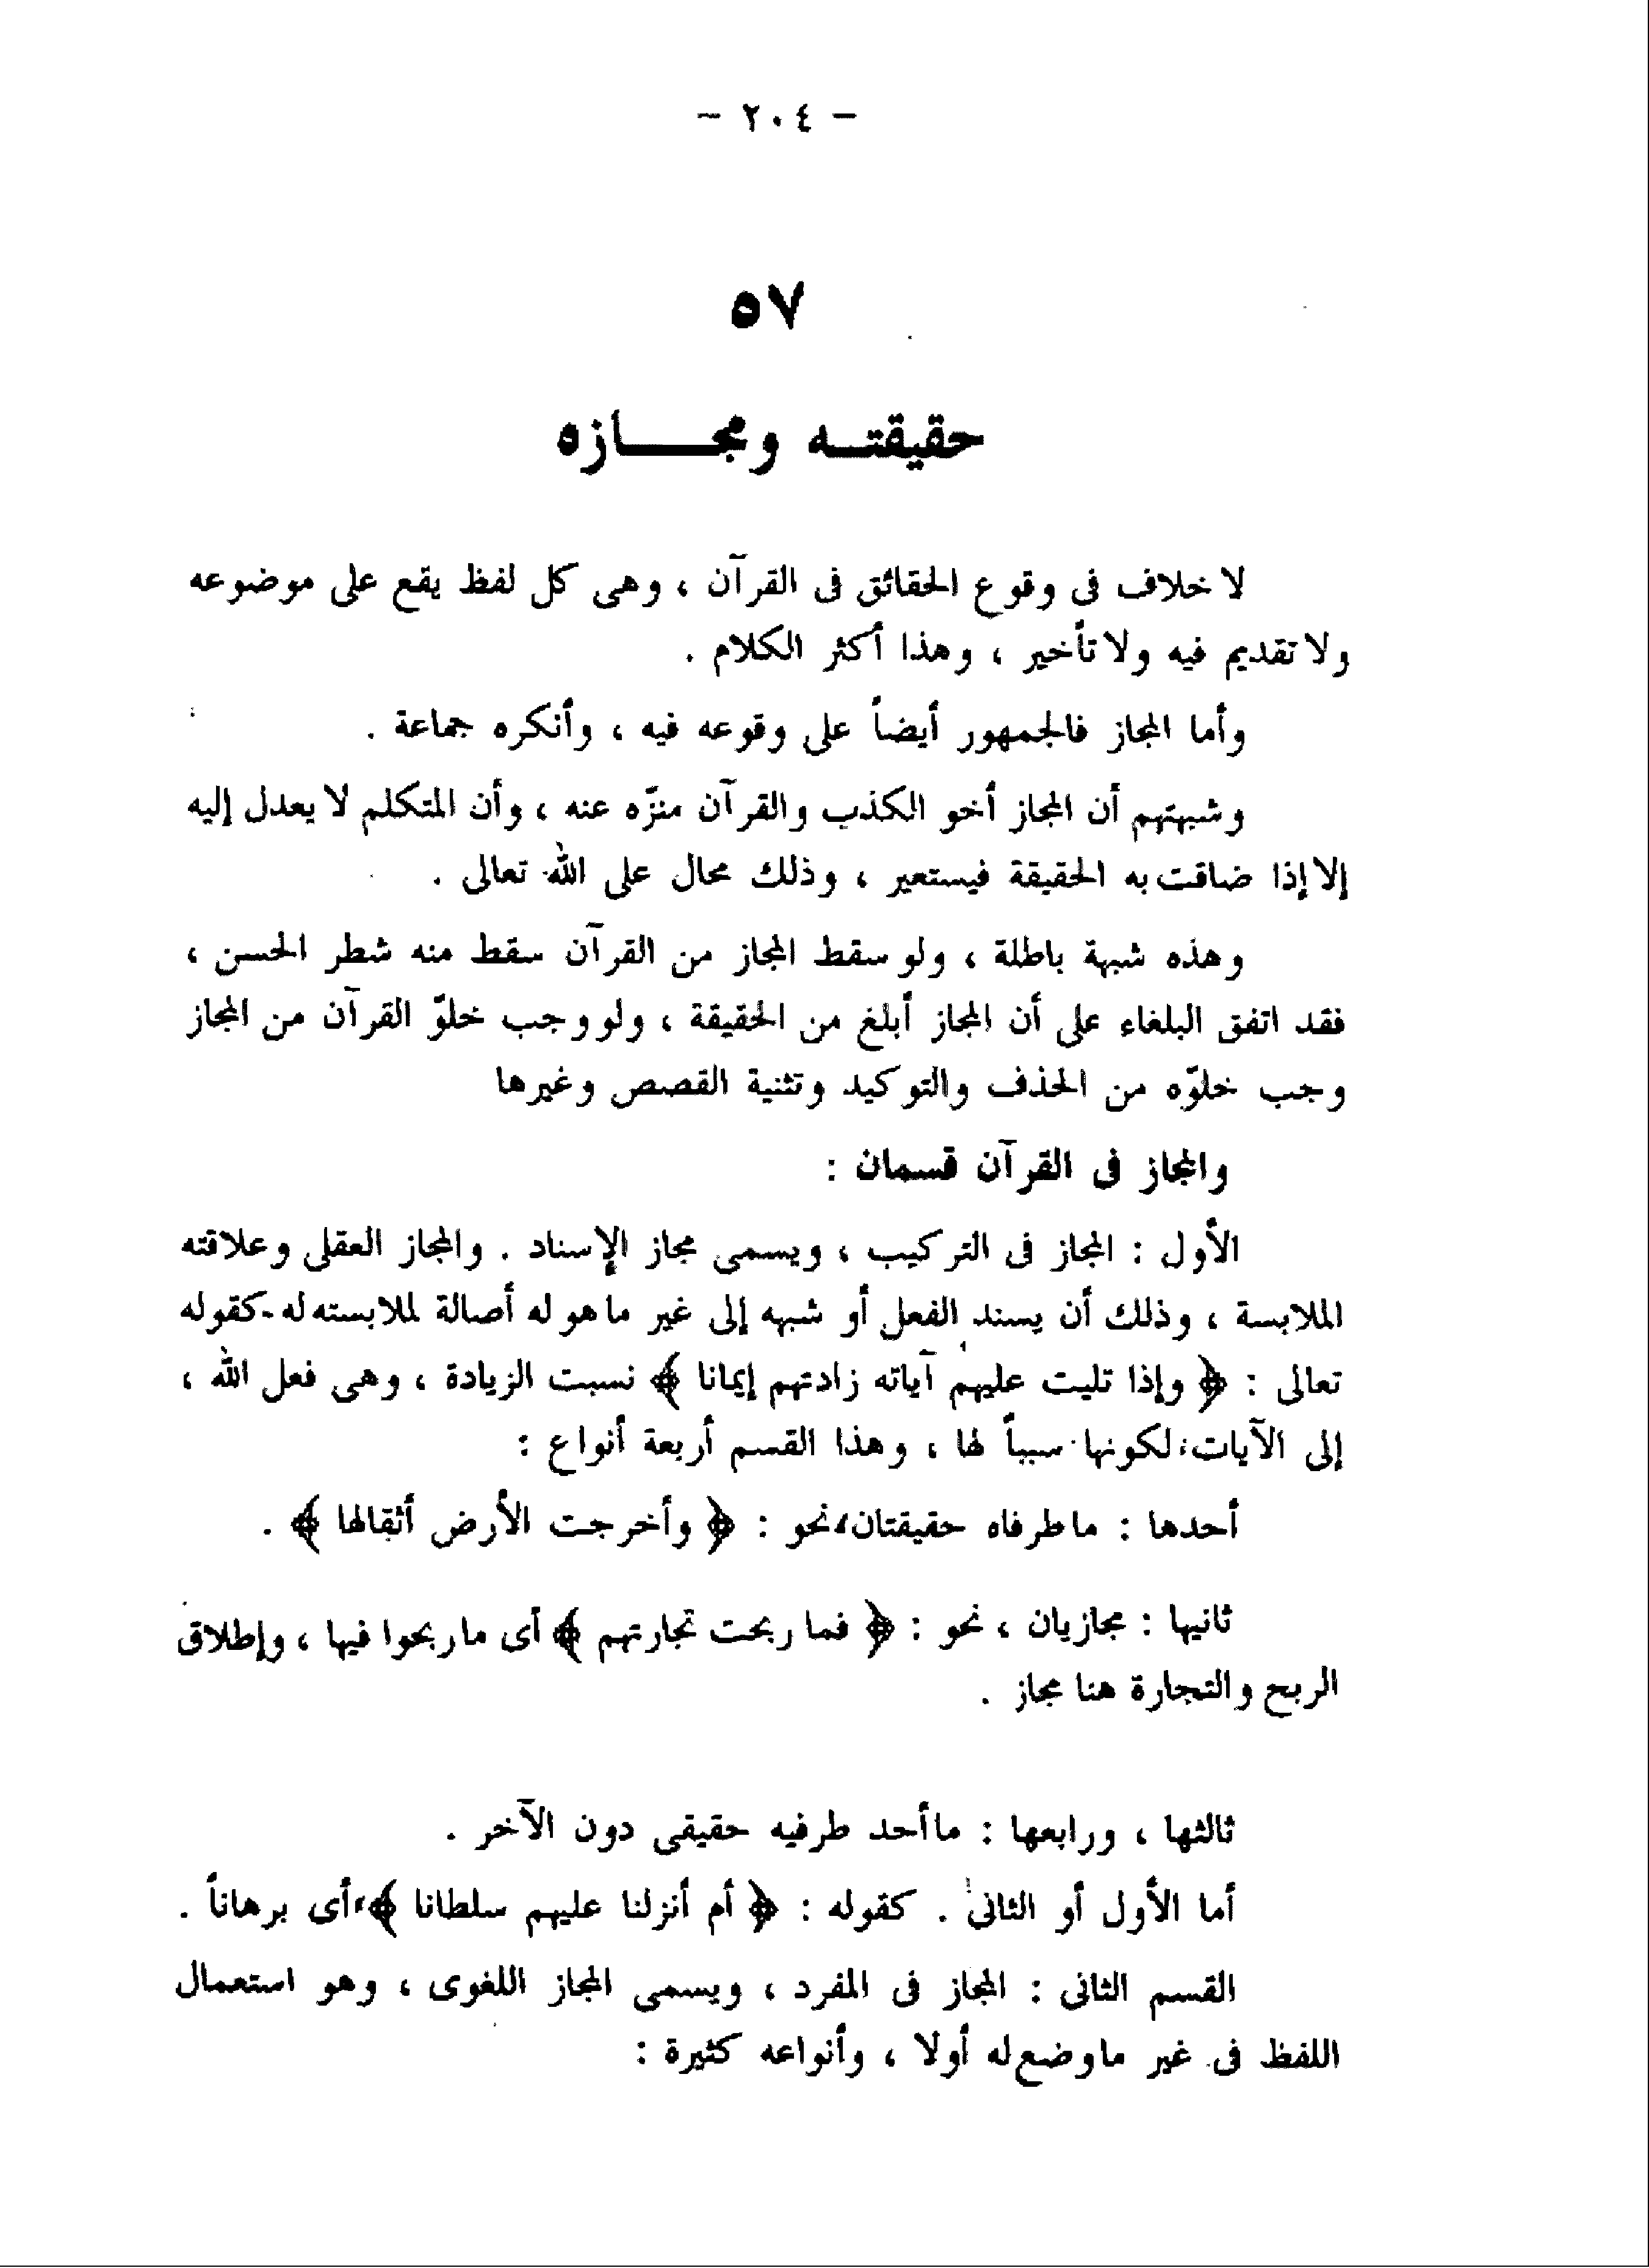 – ٢٠٤ –
٥٧
حقيقته ومجازه
لا خلاف فى وقوع الحقائق فى القرآن ، وهى كل لفظ يقع على موضوعه
ولا تقديم فيه ولا تأخير ، وهذا أكثر الكلام .
وأما المجاز فالجمهور أيضاً على وقوعه فيه ، وأنكره جماعة .
وشبهتهم أن المجاز أخو الكذب والقرآن منزّه عنه ، وأن المتكلم لا يعدل إليه
إلا إذا ضاقت به الحقيقة فيستعير ، وذلك محال على الله تعالى .
وهذه شبهة باطلة ، ولو سقط المجاز من القرآن سقط منه شطر الحسن ،
فقد اتفق البلغاء على أن المجاز أبلغ من الحقيقة ، ولو وجب خلوّ القرآن من المجاز
وجب خلوّه من الحذف والتوكيد وتثنية القصص وغيرها
والمجاز فى القرآن قسمان :
الأول : المجاز فى التركيب ، ويسمى مجاز الإسناد . والمجاز العقلى وعلاقته
الملابسة ، وذلك أن يسند الفعل أو شبهه إلى غير ما هو له أصالة لملابسته له - كقوله
تعالى : ﴿ وإذا تليت عليهم آياته زادتهم إيمانا ﴾ نسبت الزيادة ، وهى فعل الله ،
إلى الآيات ؛ لكونها سبباً لها ، وهذا القسم أربعة أنواع :
أحدها : ما طرفاه حقيقتان ، نحو : ﴿ وأخرجت الأرض أثقالها ﴾ .
ثانيها : مجازيان ، نحو : ﴿ فما ربحت تجارتهم ﴾ أى ما ربحوا فيها ، وإطلاق
الربح والتجارة هنا مجاز .
ثالثها ، ورابعها : ما أحد طرفيه حقيقى دون الآخر .
أما الأول أو الثانى . كقوله : ﴿ أم أنزلنا عليهم سلطانا ﴾ ، أى برهاناً .
القسم الثانى : المجاز فى المفرد ، ويسمى المجاز اللغوى ، وهو استعمال
اللفظ فى غير ما وضع له أولا ، وأنواعه كثيرة :